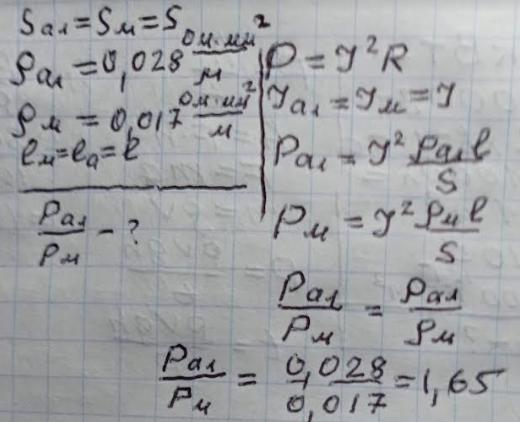 Sал = Sм = S
ρал = 0,028 Ом·мм²/м
ρм = 0,017 Ом·мм²/м
lм = lа = l
Pал/Pм - ?
P = I²R
Iал = Iм = I
Pал = I² ρал l/S
Pм = I² ρм l/S
Pал/Pм = ρал/ρм
Pал/Pм = 0,028/0,017 = 1,65